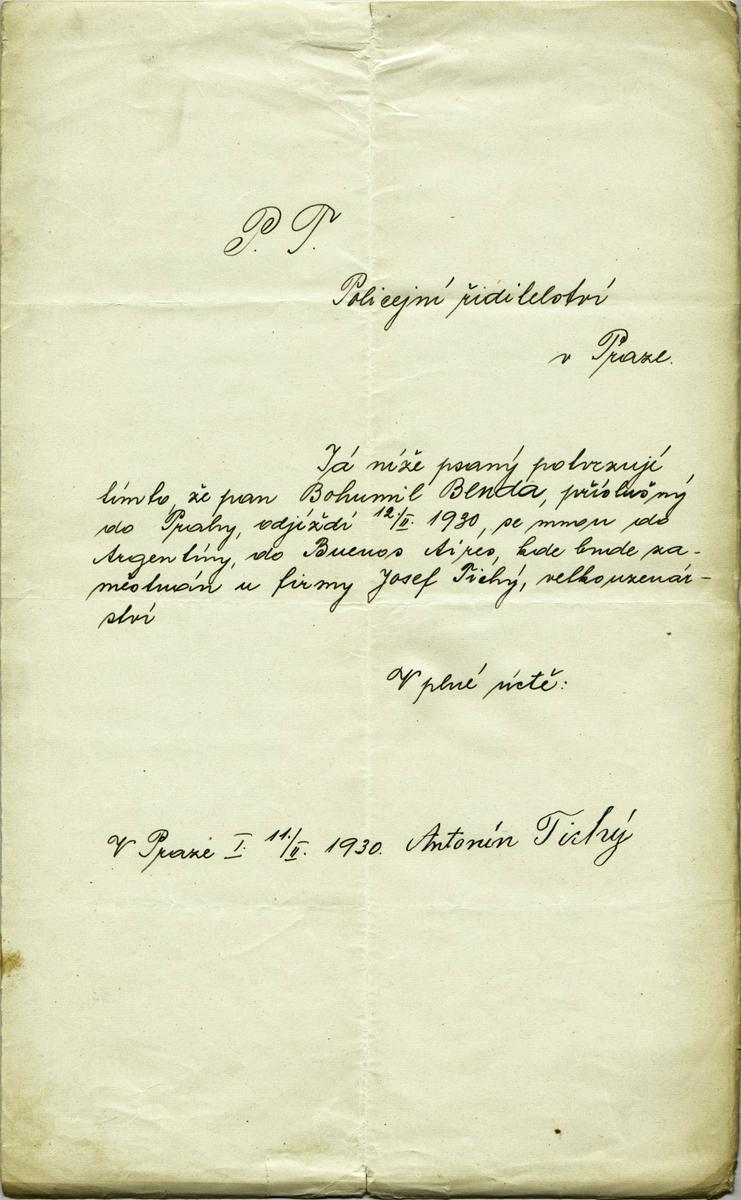 P. T.
Policejní ředitelství
v Praze.
Já níže psaný potvrzují
tímto, že pan Bohumil Benda, příslušný
do Prahy, odjíždí 12./II. 1930, se mnou do
Argentíny, do Buenos Aires, kde bude za-
městnán u firmy Josef Tichý, velkouzenář-
ství
V plné úctě:
V Praze I. 11./II. 1930. Antonín Tichý